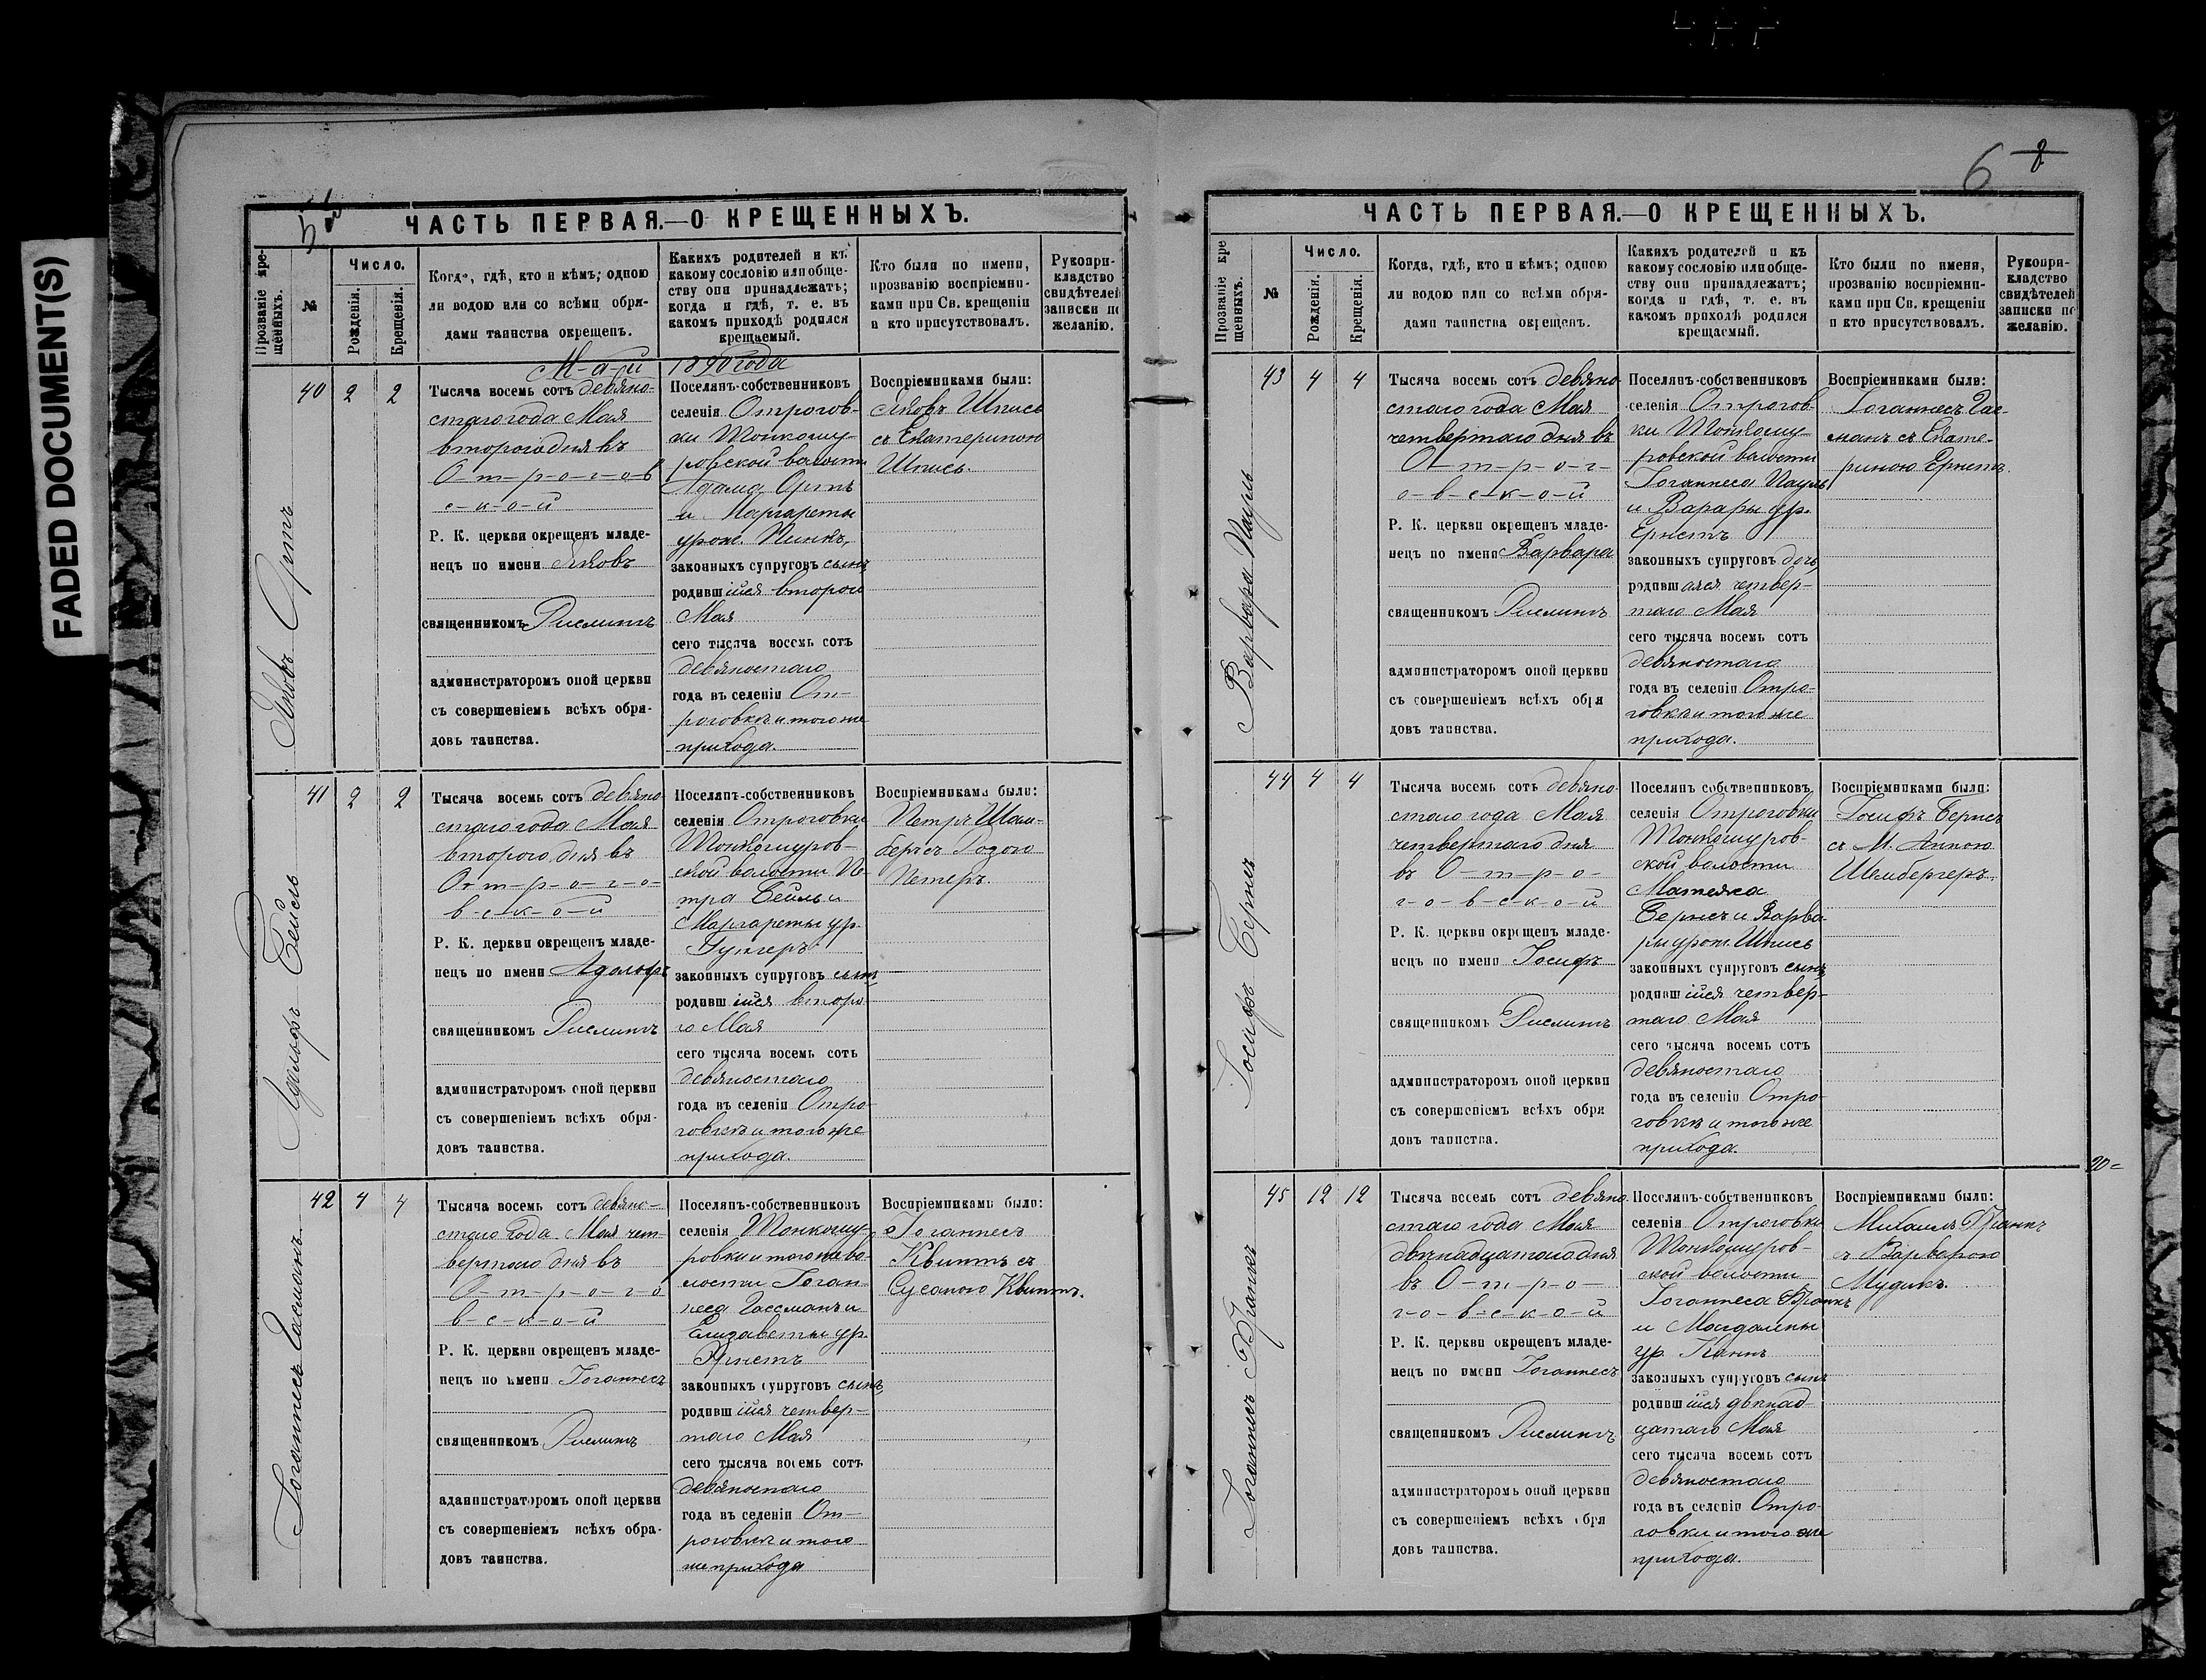 FADED DOCUMENT(S)
5
ЧАСТЬ ПЕРВАЯ.—О КРЕЩЕННЫХЪ.
Прозваніе кре-
щенныхъ.
№
Число.
Рожденія.
Крещенія.
Когда, гдѣ, кто и кѣмъ; одною
ли водою или со всѣми обря-
дами таинства окрещенъ.
Какихъ родителей и къ
какому сословію или обще-
ству они принадлежатъ;
когда и гдѣ, т. е. въ
какомъ приходѣ родился
крещаемый.
Кто были по имени,
прозванію воспріемни-
ками при Св. крещеніи
и кто присутствовалъ.
Рукопри-
кладство
свидѣтелей
записки по
желанію.
М-а-й 1890 года
Яковъ Ортъ
40 2 2
Тысяча восемь сотъ девяно-
стаго года Мая
второго дня въ
О-т-р-о-г-о-в
с-к-о-й
Р. К. церкви окрещенъ младе-
нецъ по имени Яковъ
священникомъ Рислингъ
администраторомъ оной церкви
съ совершеніемъ всѣхъ обря-
довъ таинства.
Поселянъ-собственниковъ
селенія Отрогов-
ки Тонкошу-
ровской волости
Адама Ортъ
и Маргареты
урож. Пинкъ,
законныхъ супруговъ сынъ
родившійся второго
Мая
сего тысяча восемь сотъ
девяностаго
года въ селеніи От-
роговкѣ и того же
прихода.
Воспріемниками были:
Яковъ Шписъ
съ Екатериною
Шписъ.
Адольфъ Бейль
41 2 2
Тысяча восемь сотъ девяно-
стаго года Мая
второго дня въ
О-т-р-о-г-о-
в-с-к-о-й
Р. К. церкви окрещенъ младе-
нецъ по имени Адольфъ
священникомъ Рислингъ
администраторомъ оной церкви
съ совершеніемъ всѣхъ обря-
довъ таинства.
Поселянъ-собственниковъ
селенія Отроговки
Тонкошуров-
ской волости Пе-
тра Бейль и
Маргареты ур.
законныхъ супруговъ сынъ
родившійся второ-
го Мая
сего тысяча восемь сотъ
девяностаго
года въ селеніи Отро-
говкѣ и того же
прихода.
Воспріемниками были:
Петръ Шам-
бергъ
Петеръ.
Іоганнесъ Гасманъ.
42 4 4
Тысяча восемь сотъ девяно-
стаго года Мая чет-
вертаго дня въ
О-т-р-о-г-о
в-с-к-о-й
Р. К. церкви окрещенъ младе-
нецъ по имени Іоганнесъ
священникомъ Рислингъ
администраторомъ оной церкви
съ совершеніемъ всѣхъ обря-
довъ таинства.
Поселянъ-собственниковъ
селенія Тонкошу-
ровки и того же во-
лости Іоган-
неса Гассманъ и
Елизаветы ур.
Эрнстъ
законныхъ супруговъ сынъ
родившійся четвер-
таго Мая
сего тысяча восемь сотъ
девяностаго
года въ селеніи От-
роговкѣ и того
же прихода
Воспріемниками были:
Іоганнесъ
Квинтъ съ
Сусаною Квинтъ.
6 8
ЧАСТЬ ПЕРВАЯ.—О КРЕЩЕННЫХЪ.
Прозваніе кре
щенныхъ.
№
Число.
Рожденія.
Крещенія.
Когда, гдѣ, кто и кѣмъ; одною
ли водою или со всѣми обря-
дами таинства окрещенъ.
Какихъ родителей и къ
какому сословію или обще-
ству они принадлежатъ;
когда и гдѣ, т. е. въ
какомъ приходѣ родился
крещаемый.
Кто были по имени,
прозванію воспріемни-
ками при Св. крещеніи
и кто присутствовалъ.
Рукопри-
кладство
свидѣтелей
записки по
желанію.
Варвара Пауль
43 4 4
Тысяча восемь сотъ девяно-
стаго года Мая
четвертаго дня въ
О-т-р-о-г-
о-в-с-к-о-й
Р. К. церкви окрещенъ младе-
нецъ по имени Варвара
священникомъ Рислингъ
администраторомъ оной церкви
съ совершеніемъ всѣхъ обря
довъ таинства.
Поселянъ-собственниковъ
селенія Отрогов-
ки Тонкошу-
ровской волости
Іоганнеса Пауль
и Варары ур.
Ернстъ
законныхъ супруговъ дочь,
родившаяся четвер-
таго Мая
сего тысяча восемь сотъ
девяностаго
года въ селеніи Отро-
говкѣ и того же
прихода.
Воспріемниками были:
Іоганнесъ Гас-
манъ съ Екате-
риною Ернстъ.
Іосифъ Бернсъ
44 4 4
Тысяча восемь сотъ девяно-
стаго года Мая
четвертаго дня
въ О-т-р-о-
г-о-в-с-к-о-й
Р. К. церкви окрещенъ младе-
нецъ по имени Іосифъ
священникомъ Рислингъ
администраторомъ оной церкви
съ совершеніемъ всѣхъ обря
довъ таинства.
Поселянъ собственниковъ
селенія Отроговки
Тонкошуров-
ской волости
Матеяса
Бернсъ и Варва-
ры урож. Шписъ
законныхъ супруговъ сынъ
родившійся четвер-
таго Мая
сего тысяча восемь сотъ
девяностаго
года въ селеніи Отро-
говкѣ и того же
прихода.
Воспріемниками были:
Іосифъ Бернсъ
съ М. Анною
Шембергеръ.
20=
Іоганнесъ Франкъ
45 12 12
Тысяча восемь сотъ девяно-
стаго года Мая
двѣнадцатаго дня
въ О-т-р-о-
г-о-в-с-к-о-й
Р. К. церкви окрещенъ младе-
нецъ по имени Іоганнесъ
священникомъ Рислингъ
администраторомъ оной церкви
съ совершеніемъ всѣхъ обря
довъ таинства.
Поселянъ-собственниковъ
селенія Отроговки
Тонкошуров-
ской волости
Іоганнеса Франкъ
и Магдалены
ур.
законныхъ супруговъ сынъ
родившійся двѣнад-
цатаго Мая
сего тысяча восемь сотъ
девяностаго
года въ селеніи Отро-
говки и того же
прихода.
Воспріемниками были:
Михаилъ Франкъ
съ Варварою
Мудикъ.